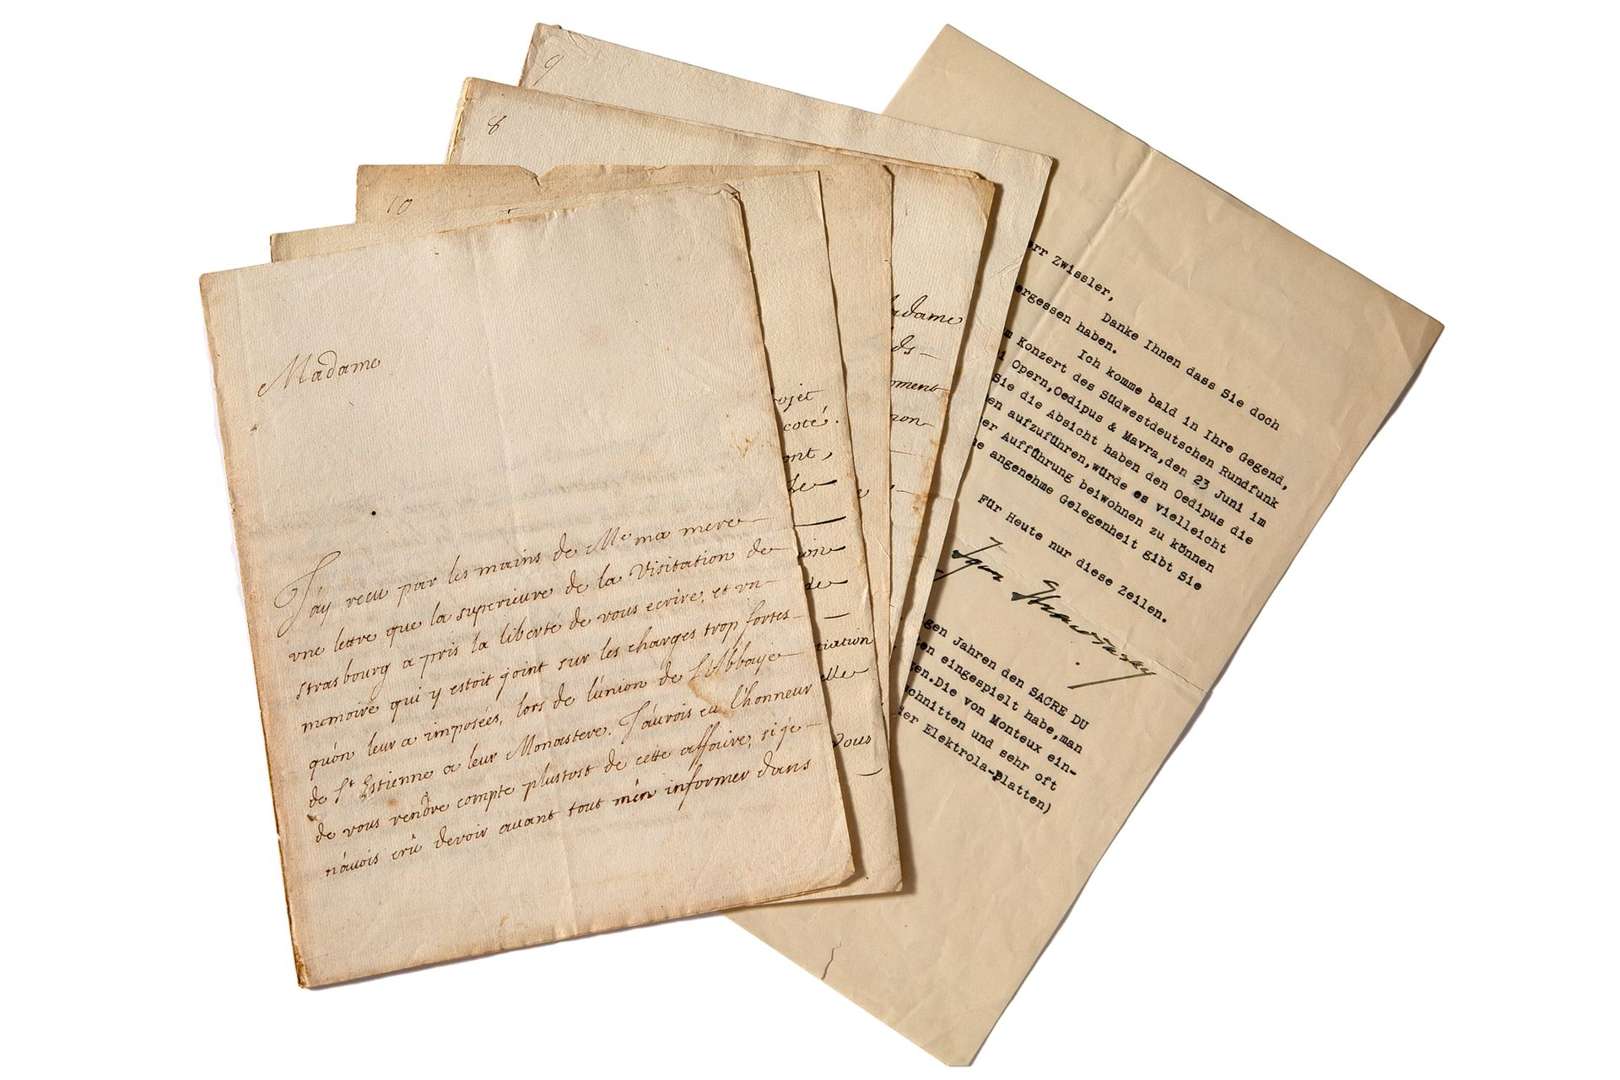 9
8
10
Madame
J'ay receu par les mains de Me ma mere
vne lettre que la superieure de la Visitation de
strasbourg a pris la liberte de vous ecrire, et vn
memoire qui y estoit joint sur les charges trop fortes
qu'on leur a imposées, lors de l'union de l'Abbaye
de St Estienne a leur Monastere. J'aurois eu l'honneur
de vous rendre compte plustost de cette affaire, si je
n'auois crû devoir auant tout m'en informer dans
ojet
coté.
ont,
de
tiation
elle
Vous
adame
ds
oment
non
err Zwissler,
Danke Ihnen dass Sie doch
ergessen haben.
Ich komme bald in Ihre Gegend,
m Konzert des Südwestdeutschen Rundfunk
i Opern,Oedipus & Mavra,den 23 Juni im
Sie die Absicht haben den Oedipus die
en aufzuführen,würde es vielleicht
er Aufführung beiwohnen zu können
e angenehme Gelegenheit gibt Sie
Für Heute nur diese Zeilen.
Igor Strawinsky
gen Jahren den SACRE DU
ten eingespielt habe,man
en.Die von Monteux ein-
schnitten und sehr oft
der Elektrola-platten)